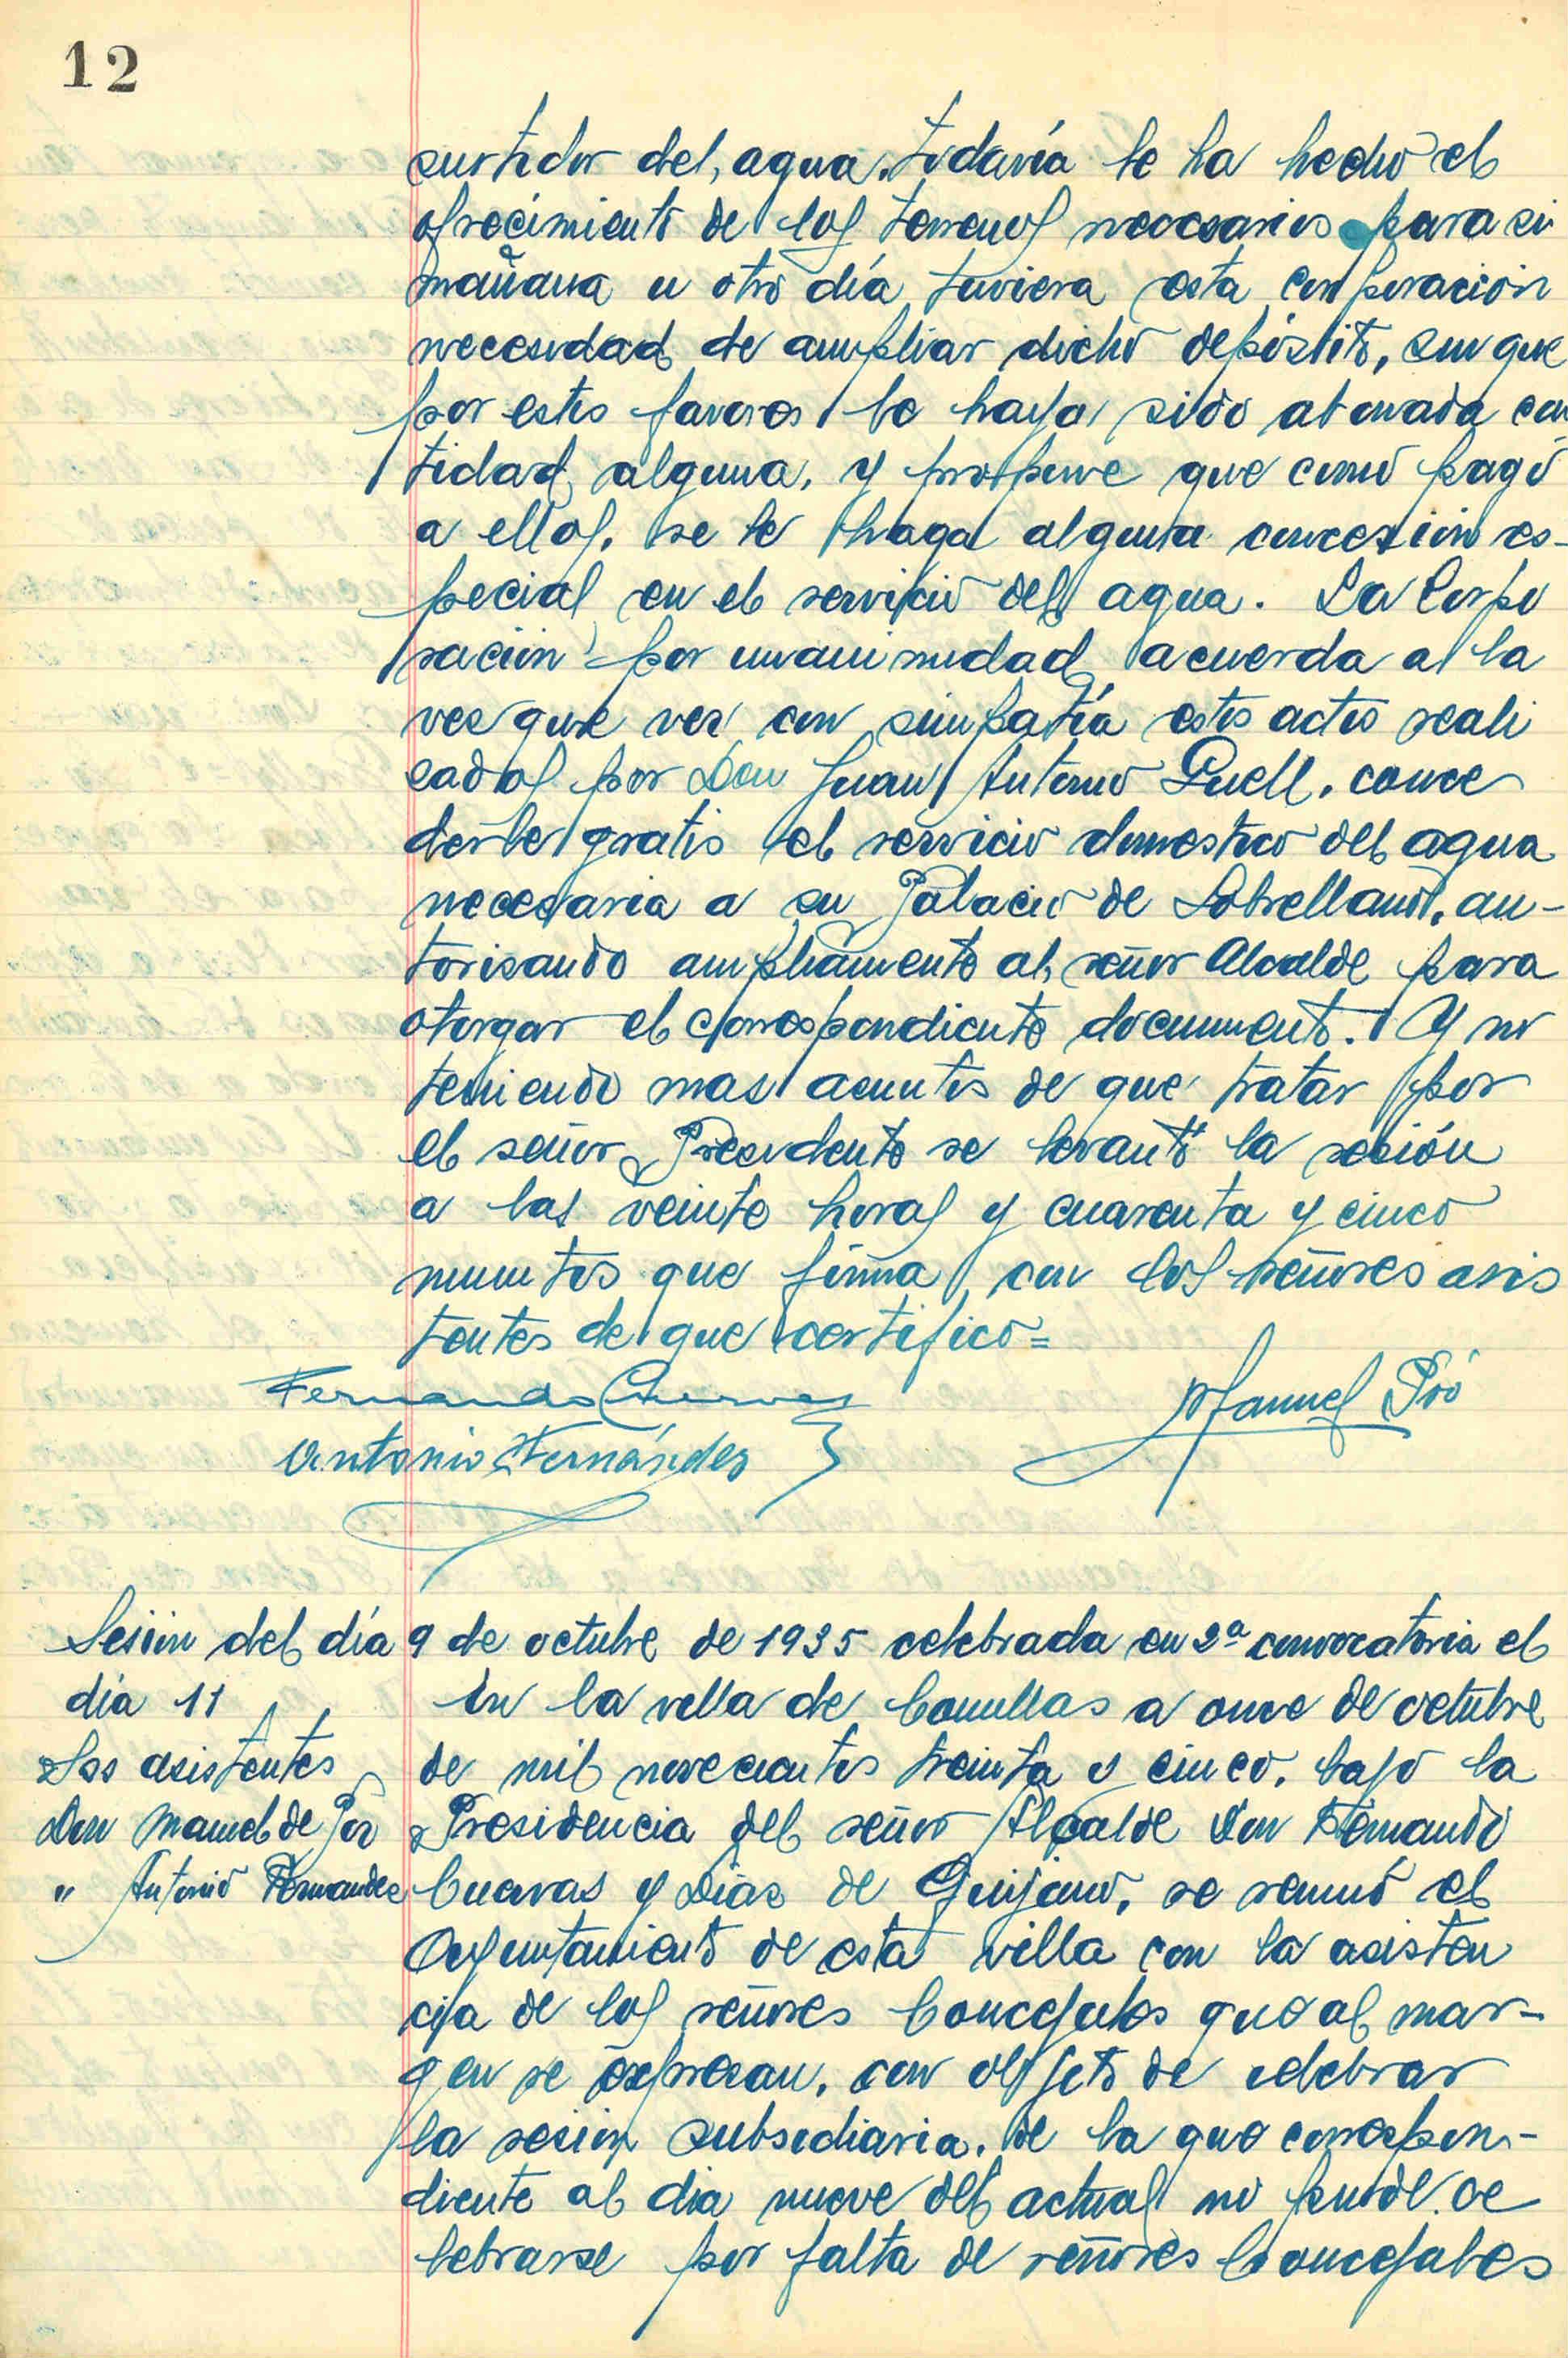 12
surtidor del, agua. todavía le ha hecho el
ofrecimiento de los terrenos necesarios para si
mañana u otro día tuviera esta corporación
necesidad de ampliar dicho depósito, sin que
por estos favores le haya sido abonada can
tidad alguna, y propone que como pago
a ellos, se le haga alguna concesión es-
pecial en el servicio del agua. La Corpo
ración por unanimidad acuerda a la
vez que ver con simpatía estos actos reali
zados por Don Juan Antonio Güell, conce
derle gratis el servicio domestico del agua
necesaria a su Palacio de Sobrellano, au-
torizando ampliamente al señor Alcalde para
otorgar el correspondiente documento. Y no
teniendo mas asuntos de que tratar por
el señor Presidente se levantó la sesión
a las veinte horas y cuarenta y cinco
minutos que firma con los señores asis
tentes de que certifico=
Fernando Cuevas
Manuel Pió
Antonio Fernández
Sesión del día 9 de octubre de 1935 celebrada en 2ª convocatoria el
día 11
En la villa de Comillas a once de octubre
Sres asistentes
de mil novecientos treinta y cinco, bajo la
Don Manuel de
Presidencia del señor Alcalde Don Fernando
" Antonio Fernandez
Cuevas y Diaz de Quijano, se reunió el
Ayuntamiento de esta villa con la asisten
cia de los señores Concejales que al mar-
gen se expresan, con objeto de celebrar
la sesion subsidiaria, de la que correspon-
diente al dia nueve del actual no pudo ce
lebrarse por falta de señores Concejales